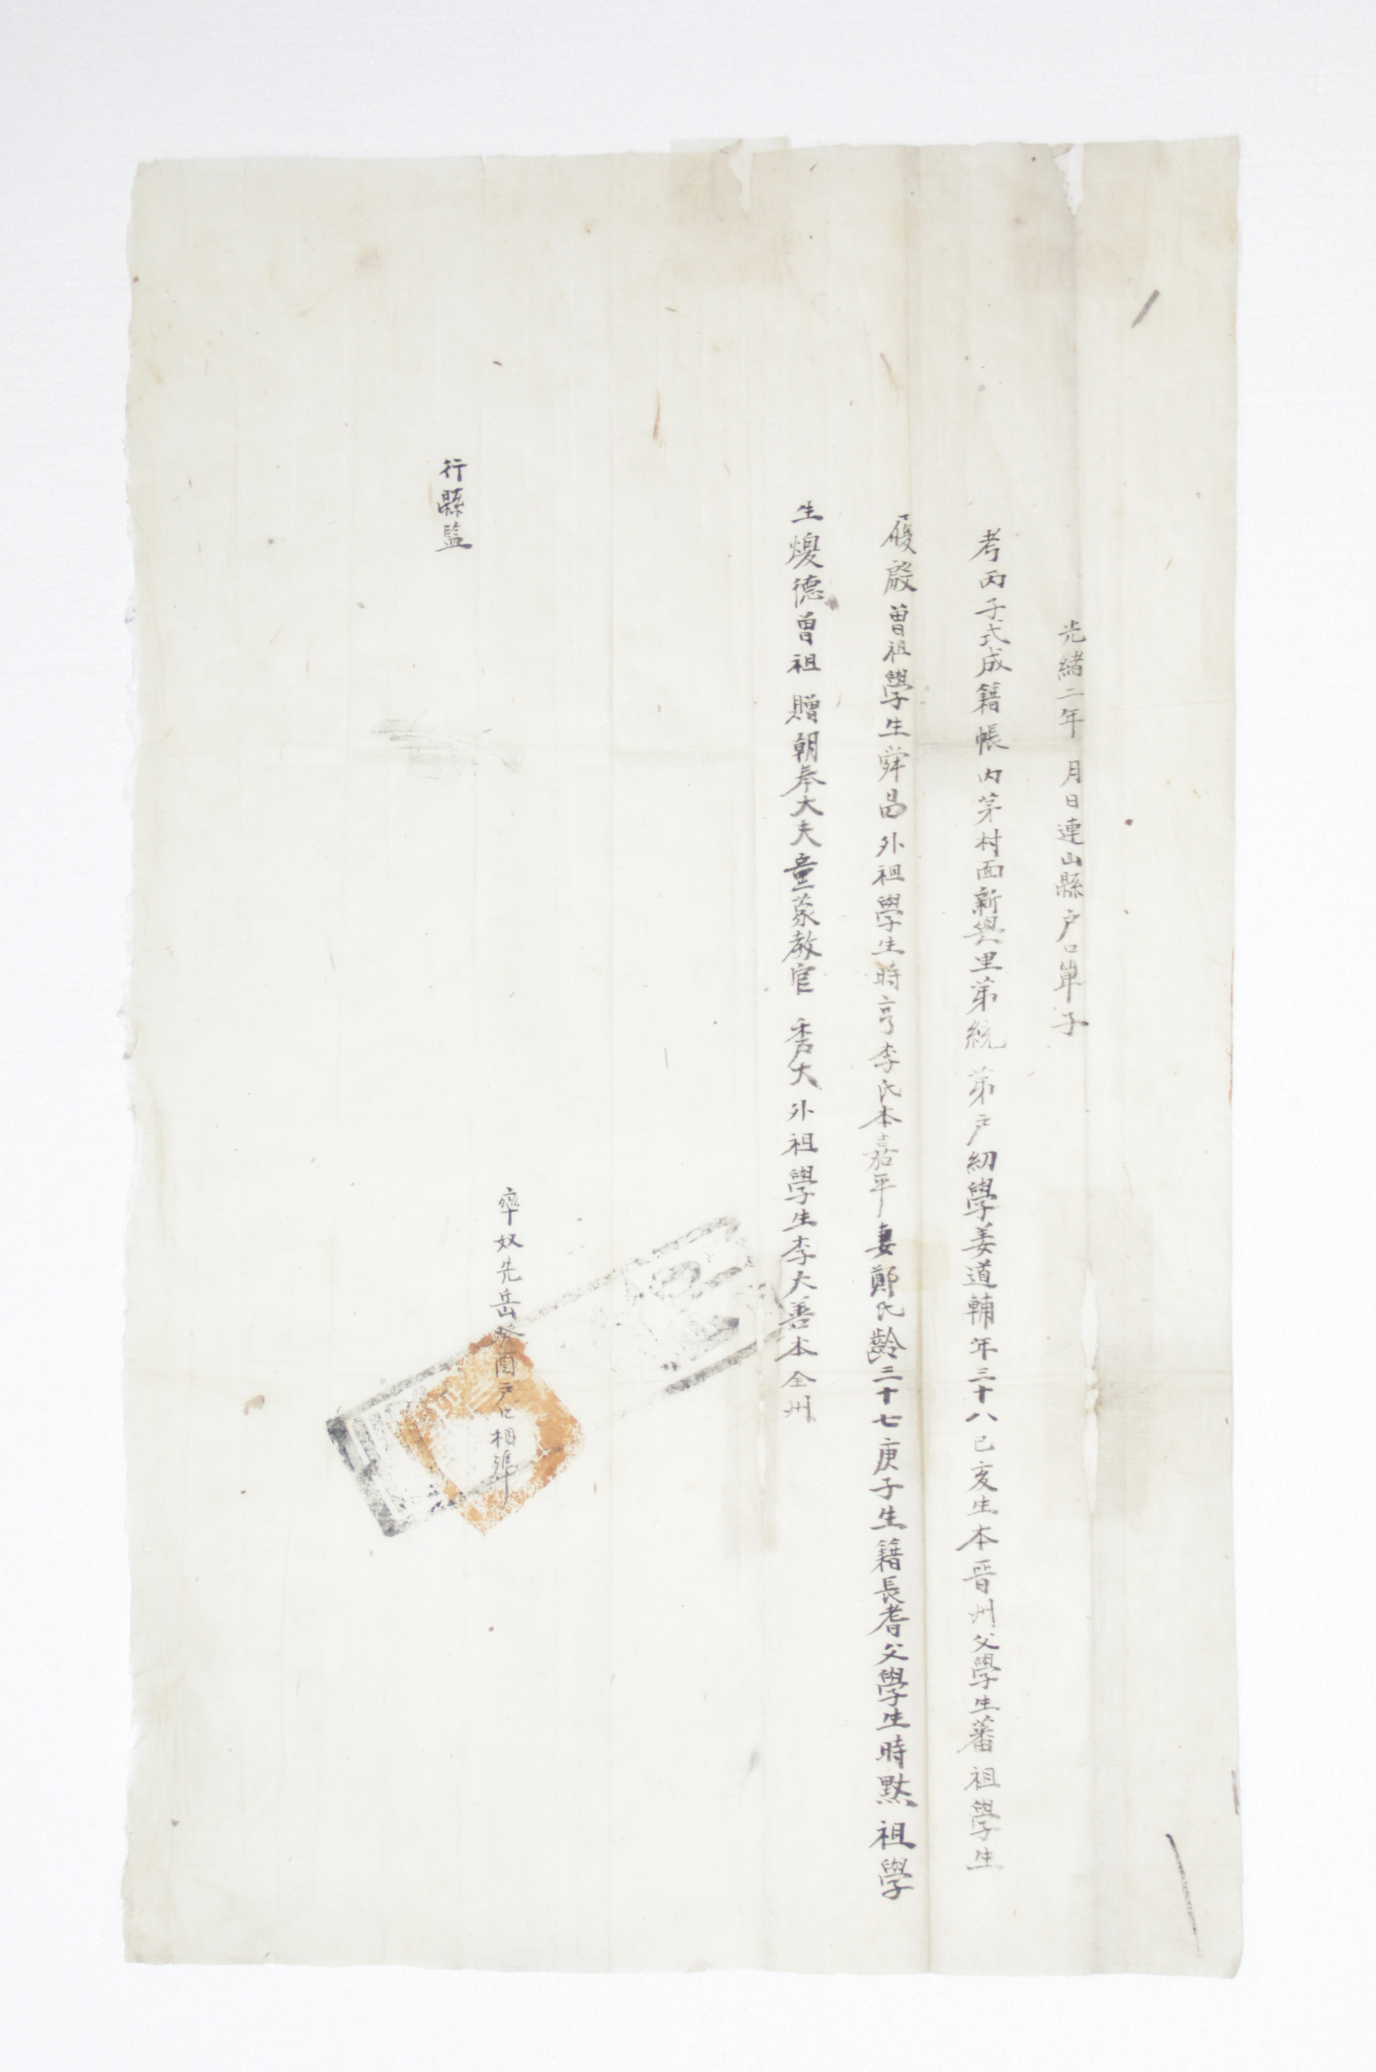 光緖二年 月日連山縣戶口單子
考丙子式成籍帳內茅村面新興里第統 第戶幼學姜道輔年三十八己亥生本晋州父學生蕃祖學生
履殷曾祖學生舜昌外祖學生時亨李氏本嘉平妻鄭氏齡三十七庚子生籍長耆父學生時默祖學
生煥德曾祖 贈朝奉大夫童蒙教官 秀大外祖學生李大善本全州
率奴先岳癸酉戶口相準
行縣監